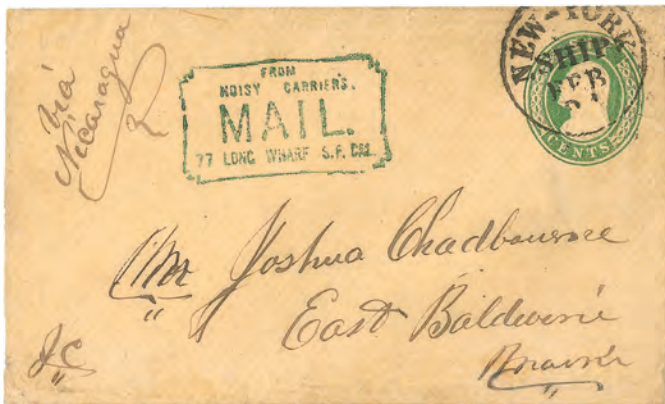 Via
Nicaragua
FROM
NOISY CARRIER'S.
MAIL.
77 LONG WHARF S.F. CAL.
NEW-YORK
SHIP
FEB
CENTS
Mr Joshua Chadbourne
East Baldwin
Maine